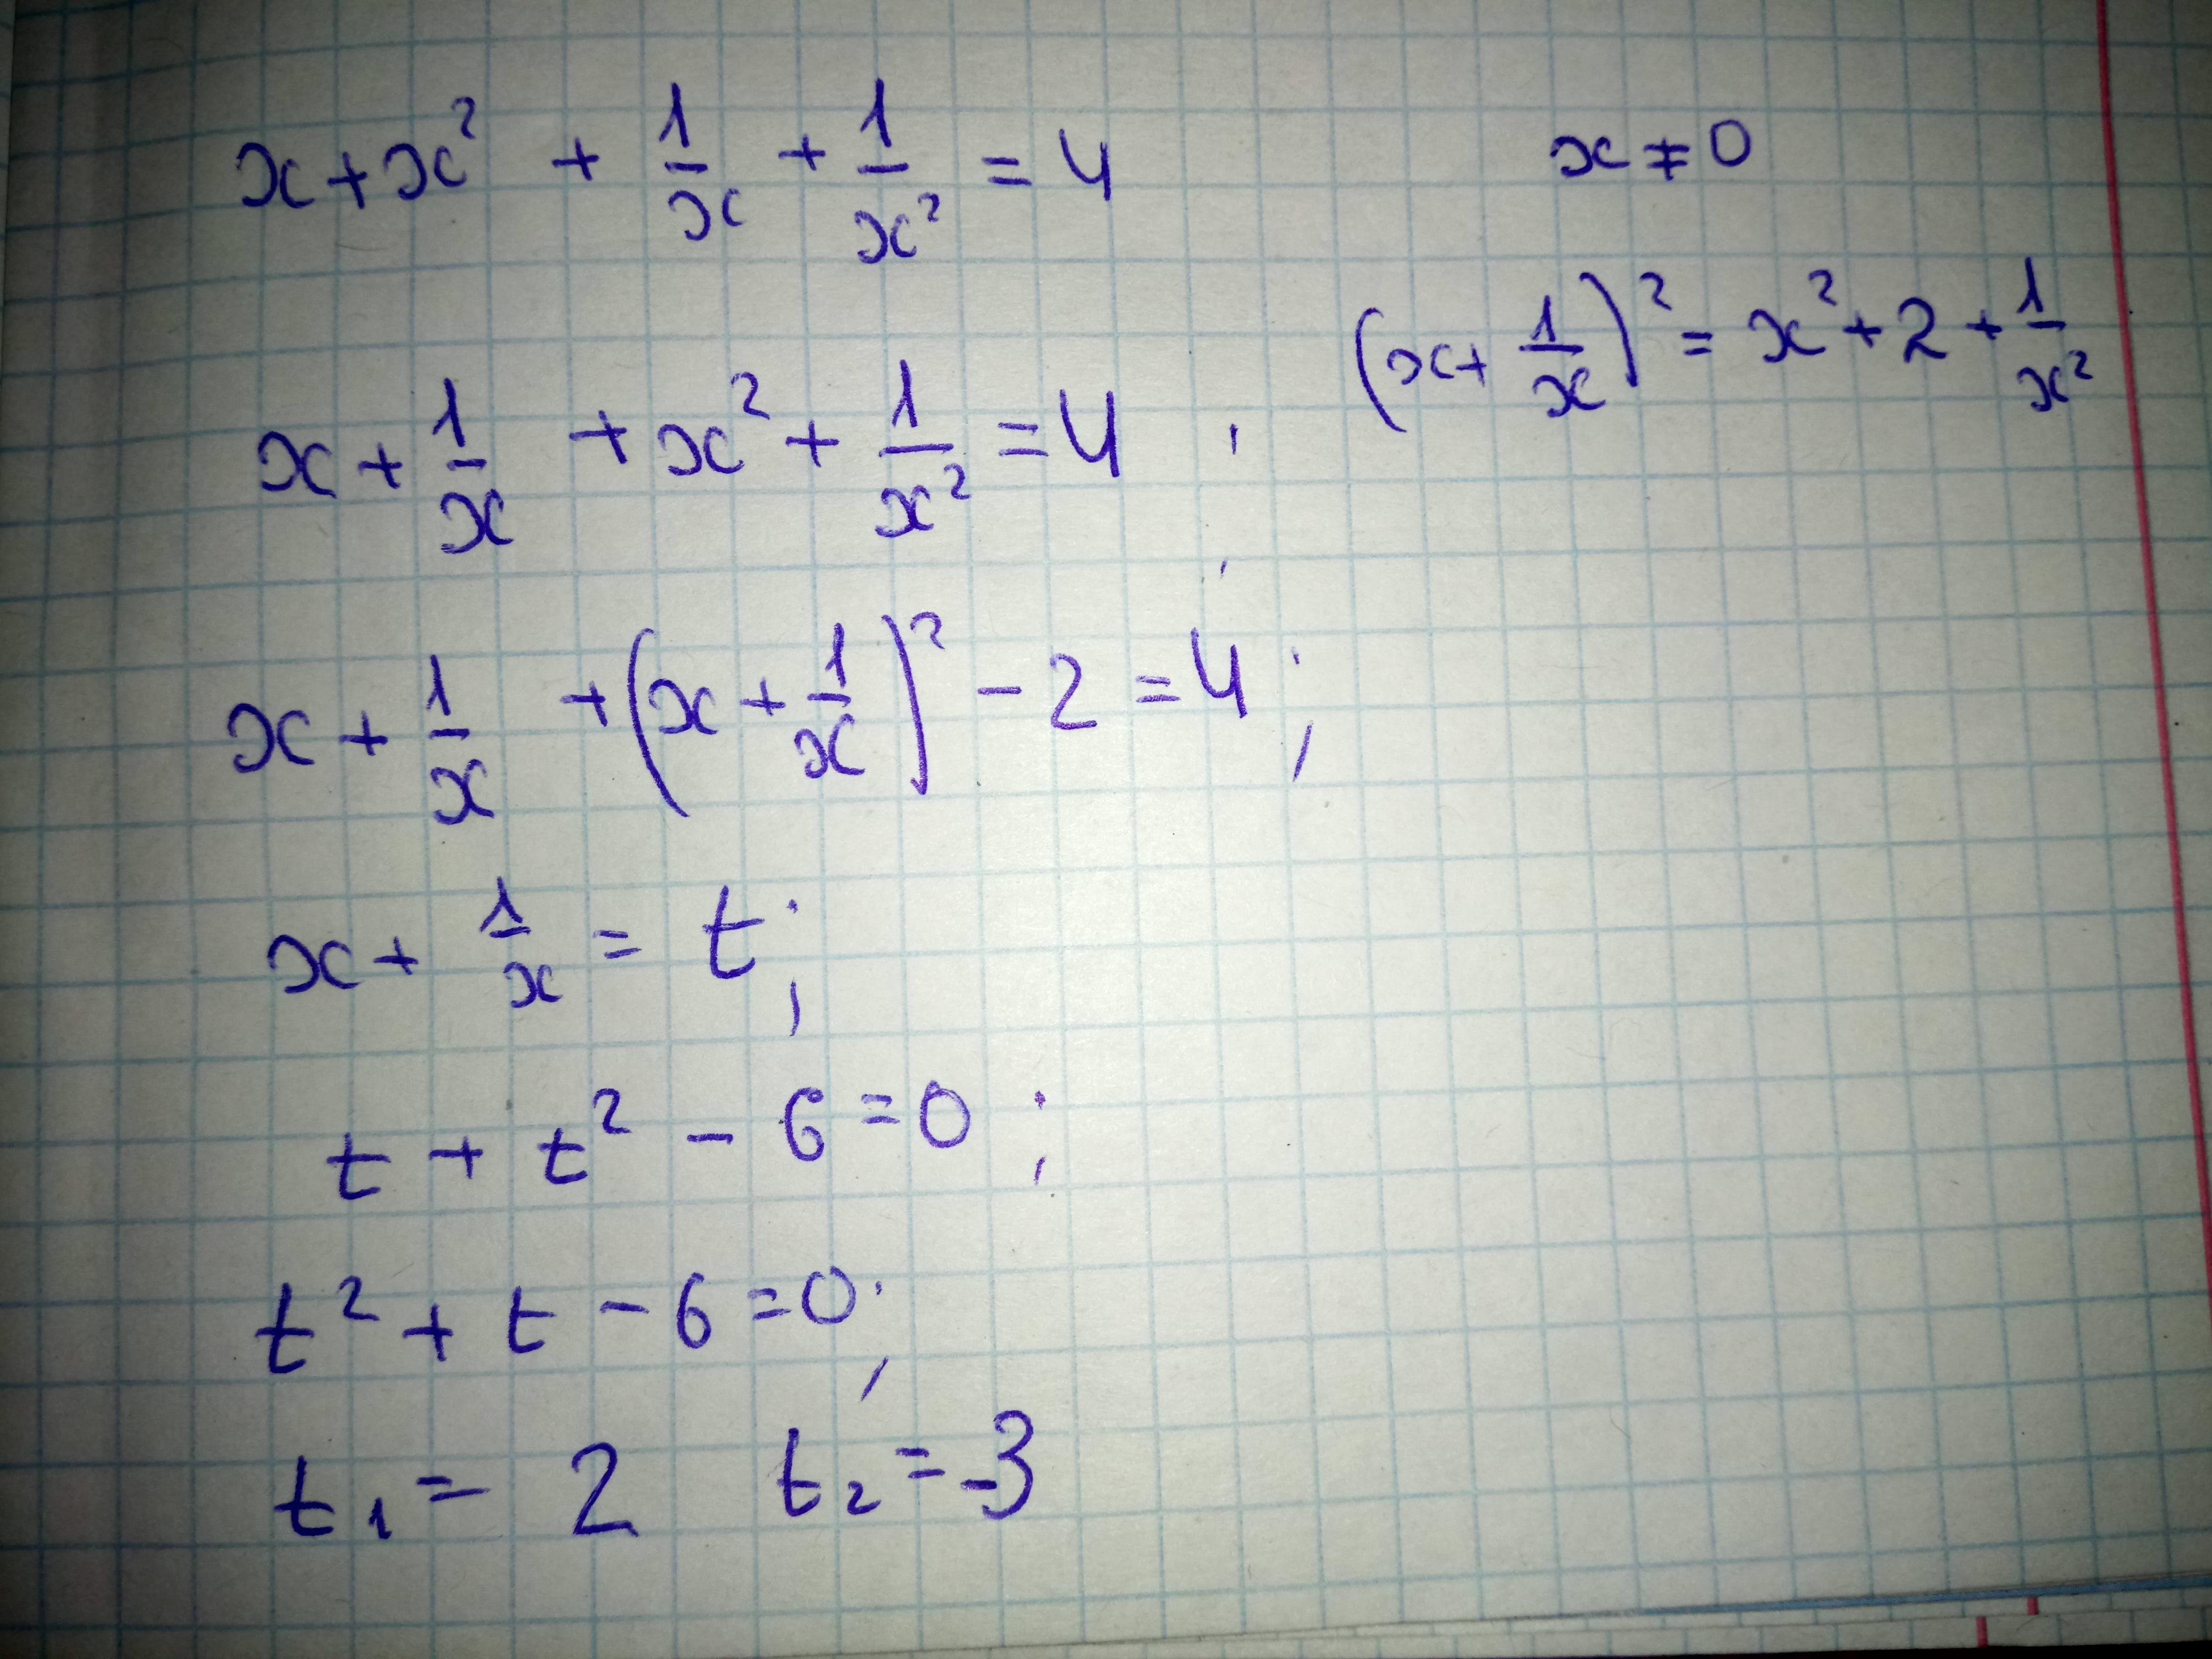 x + x² + 1/x + 1/x² = 4 x ≠ 0
(x + 1/x)² = x² + 2 + 1/x²
x + 1/x + x² + 1/x² = 4 ;
x + 1/x + (x + 1/x)² - 2 = 4 ;
x + 1/x = t ;
t + t² - 6 = 0 ;
t² + t - 6 = 0 ;
t₁ = 2 t₂ = -3